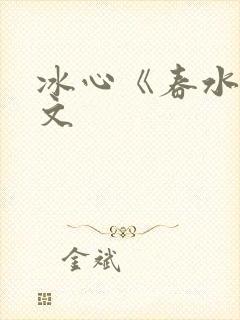 冰心《春水
文
金斌